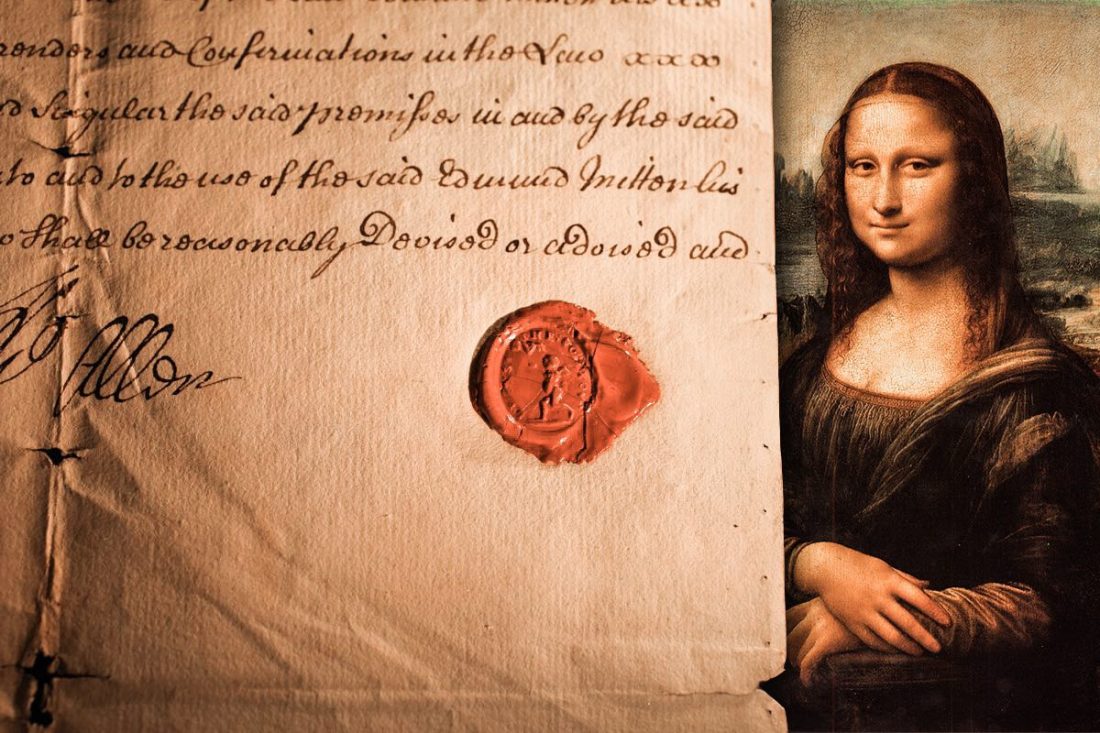 renders and Confirmations in the Law xxxx
d Singular the said premisses in and by the said
nto and to the use of the said Edmund Mitton his
o shall be reasonably Devised or advised and